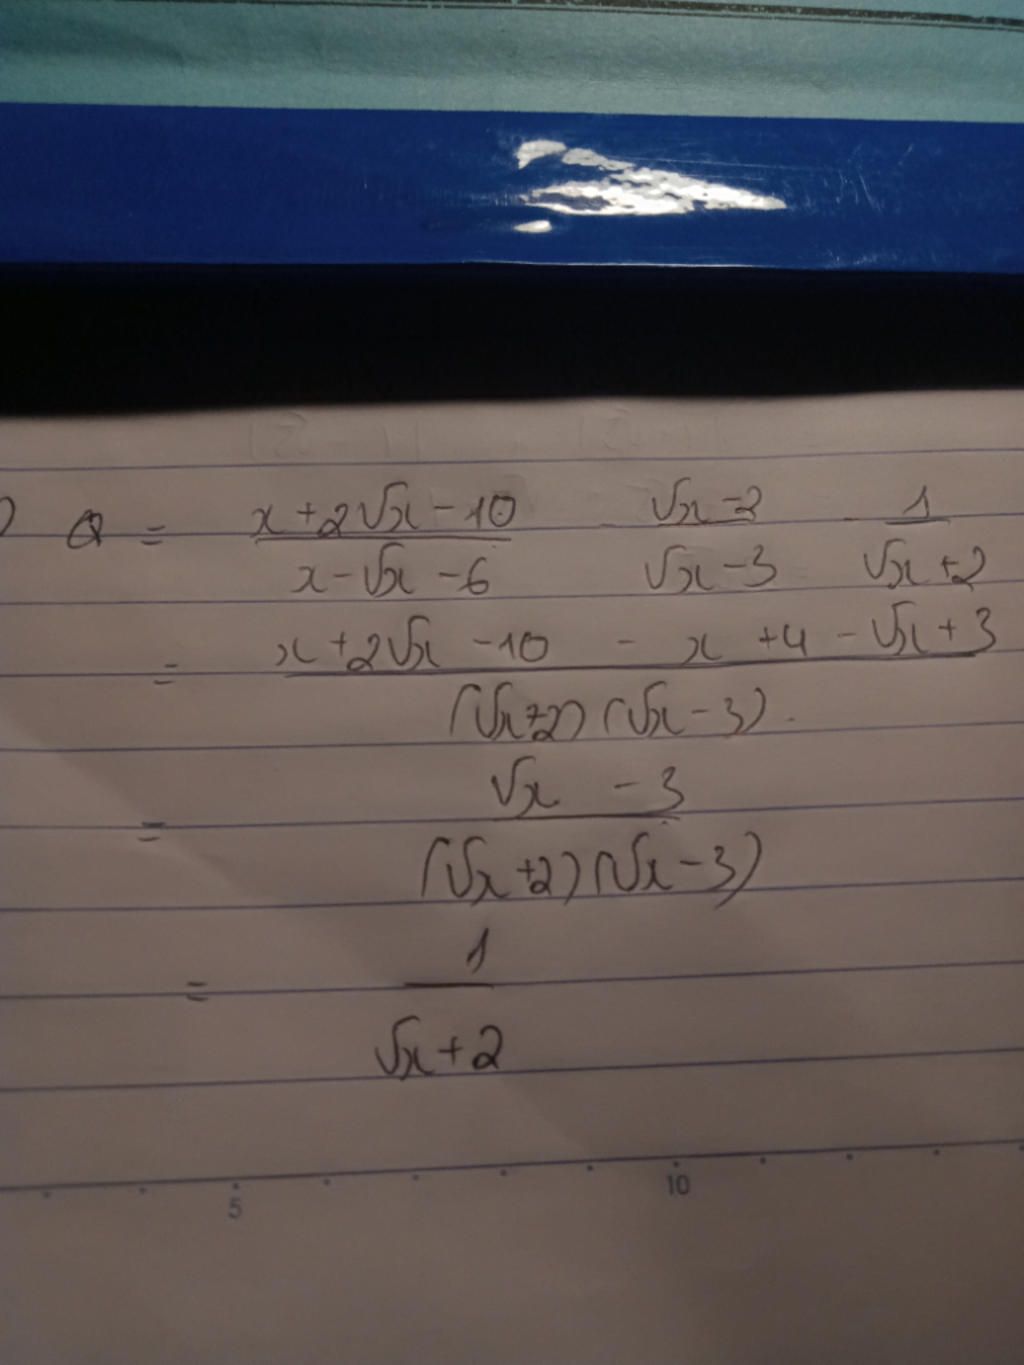 ) Q = \frac{x+2\sqrt{x}-10}{x-\sqrt{x}-6} - \frac{\sqrt{x}-2}{\sqrt{x}-3} - \frac{1}{\sqrt{x}+2}
= \frac{x+2\sqrt{x}-10 - x+4-\sqrt{x}+3}{(\sqrt{x}+2)(\sqrt{x}-3)}.
= \frac{\sqrt{x}-3}{(\sqrt{x}+2)(\sqrt{x}-3)}
= \frac{1}{\sqrt{x}+2}
5 10